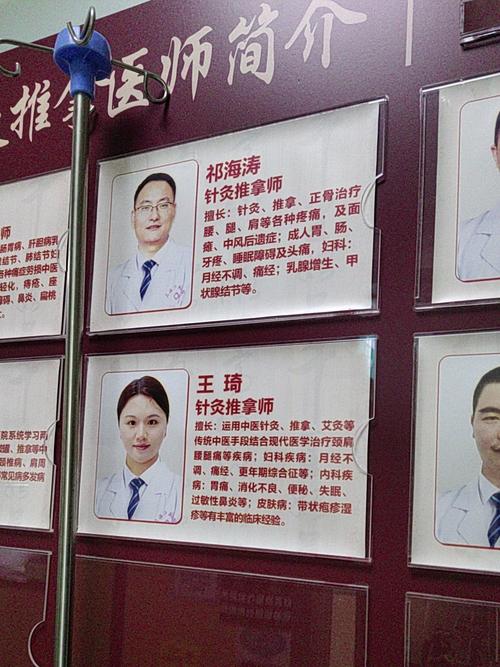 推拿医师简介
师
肠胃病、肝胆病
结节、肺结节
各种痛症劳损中医
轻化，痔疮、座
障碍、鼻炎、扁桃
院系统学习两
拔罐、推拿等中
颈椎病、肩周
等常见病多发病
祁海涛
针灸推拿师
擅长：针灸、推拿、正骨治疗
腰、腿、肩等各种疼痛，及面
瘫、中风后遗症；成人胃、肠、
牙疼、睡眠障碍及头痛，妇科：
月经不调、痛经；乳腺增生、甲
状腺结节等。
王 琦
针灸推拿师
擅长：运用中医针灸、推拿、艾灸等
传统中医手段结合现代医学治疗颈肩
腰腿痛等疾病；妇科疾病：月经不
调、痛经、更年期综合征等；内科疾
病：胃痛、消化不良、便秘、失眠、
过敏性鼻炎等；皮肤病：带状疱疹湿
疹等有丰富的临床经验。